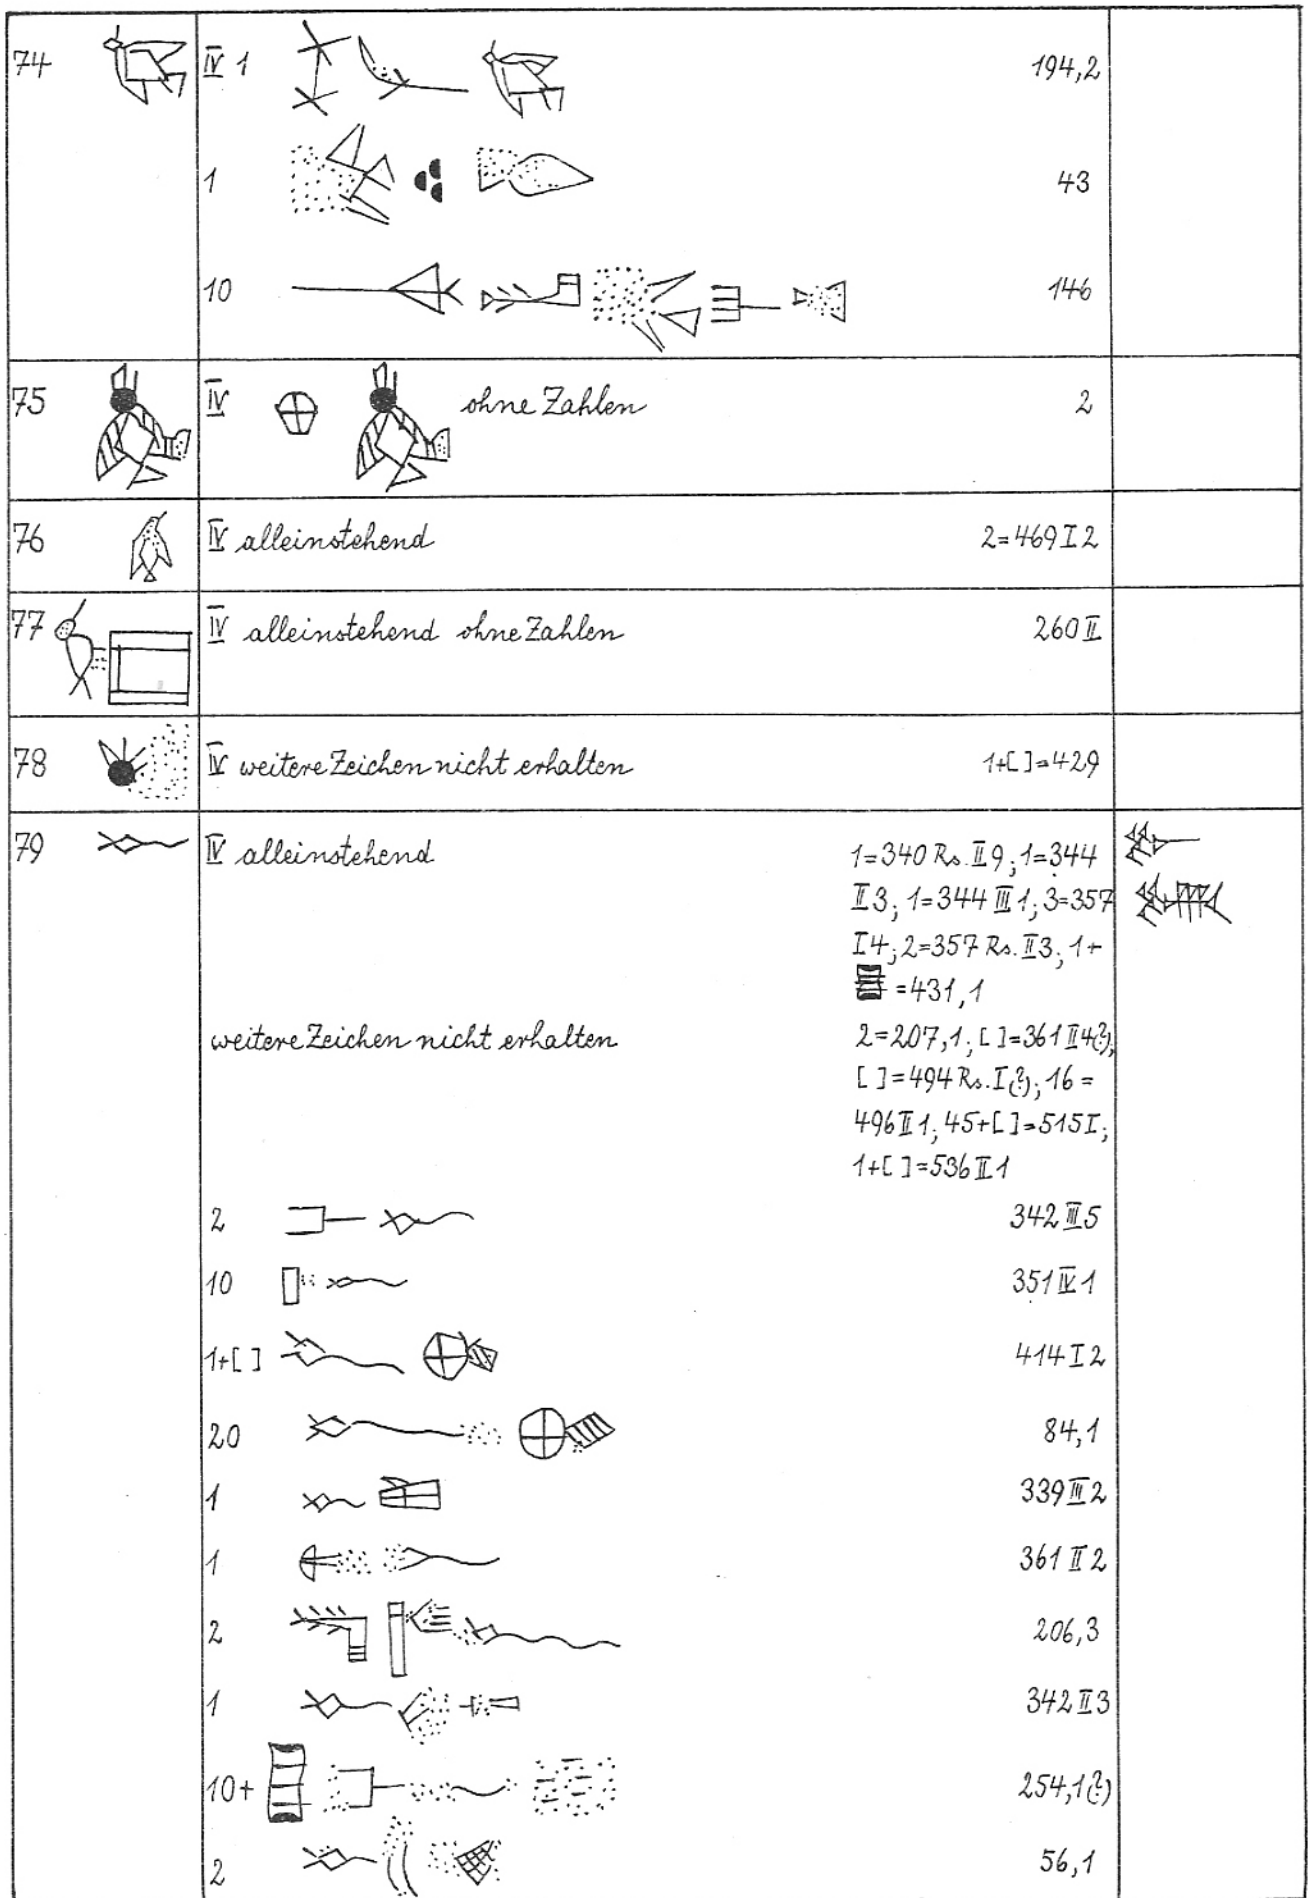 74 IV 1 194,2
1 43
10 146
75 IV ohne Zahlen 2
76 IV alleinstehend 2=469 I 2
77 IV alleinstehend ohne Zahlen 260 II
78 IV weitere Zeichen nicht erhalten 1+[ ]=429
79 IV alleinstehend 1=340 Rs. II 9; 1=344
II 3; 1=344 III 1; 3=357
I 4; 2=357 Rs. II 3; 1+
=431,1
weitere Zeichen nicht erhalten 2=207,1; [ ]=361 II 4(?);
[ ]=494 Rs. I(?); 16=
496 II 1; 45+[ ]=515 I;
1+[ ]=536 II 1
2 342 III 5
10 351 IV 1
1+[ ] 414 I 2
20 84,1
1 339 III 2
1 361 II 2
2 206,3
1 342 II 3
10+ 254,1(?)
2 56,1